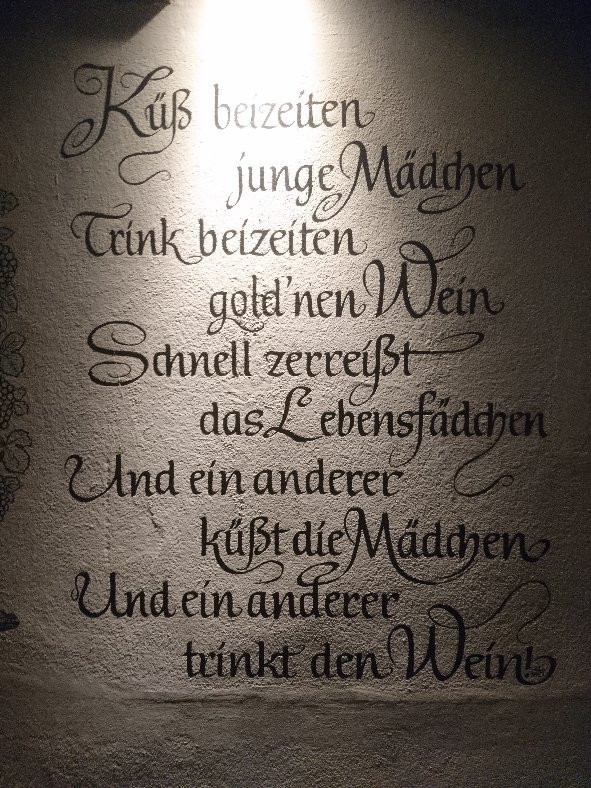 Küß beizeiten
junge Mädchen
Trink beizeiten
gold'nen Wein
Schnell zerreißt
das Lebensfädchen
Und ein anderer
küßt die Mädchen
Und ein anderer
trinkt den Wein!